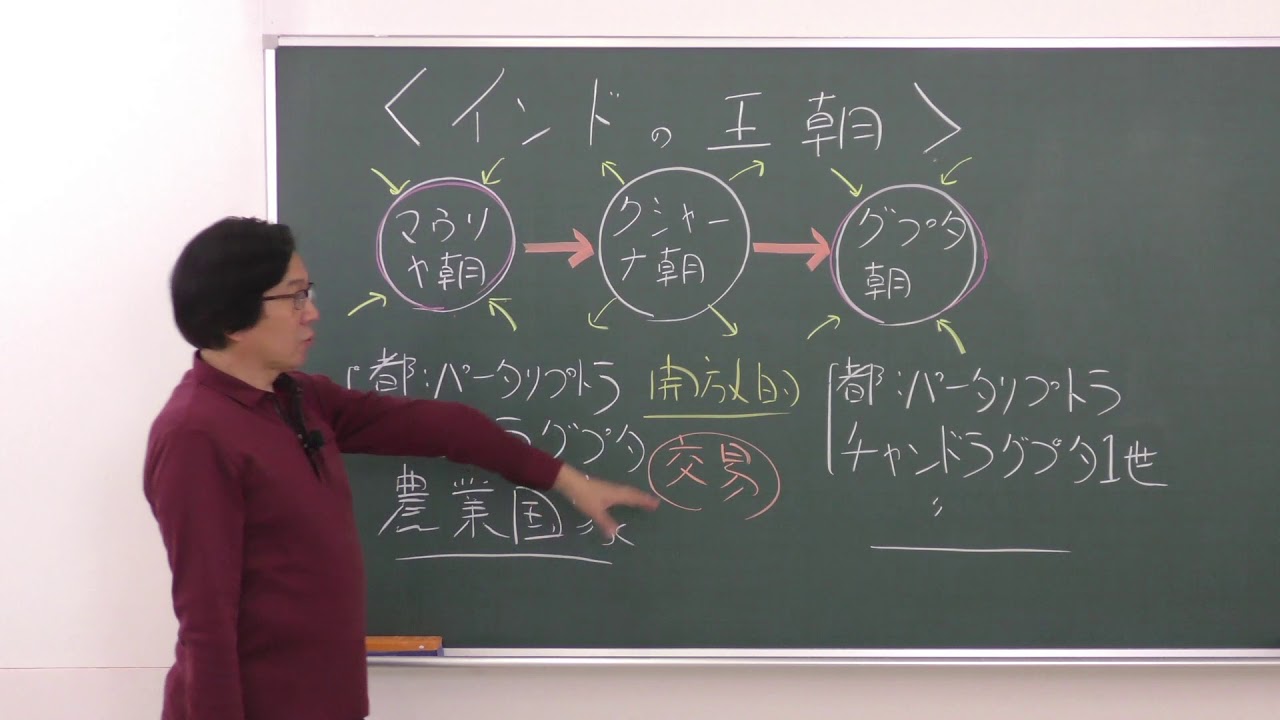 ＜インドの王朝＞
マウリ
ヤ朝
クシャー
ナ朝
グプタ
朝
都:パータリプトラ
ラグプタ
農業国家
開放的
交易
都:パータリプトラ
チャンドラグプタ1世
〃